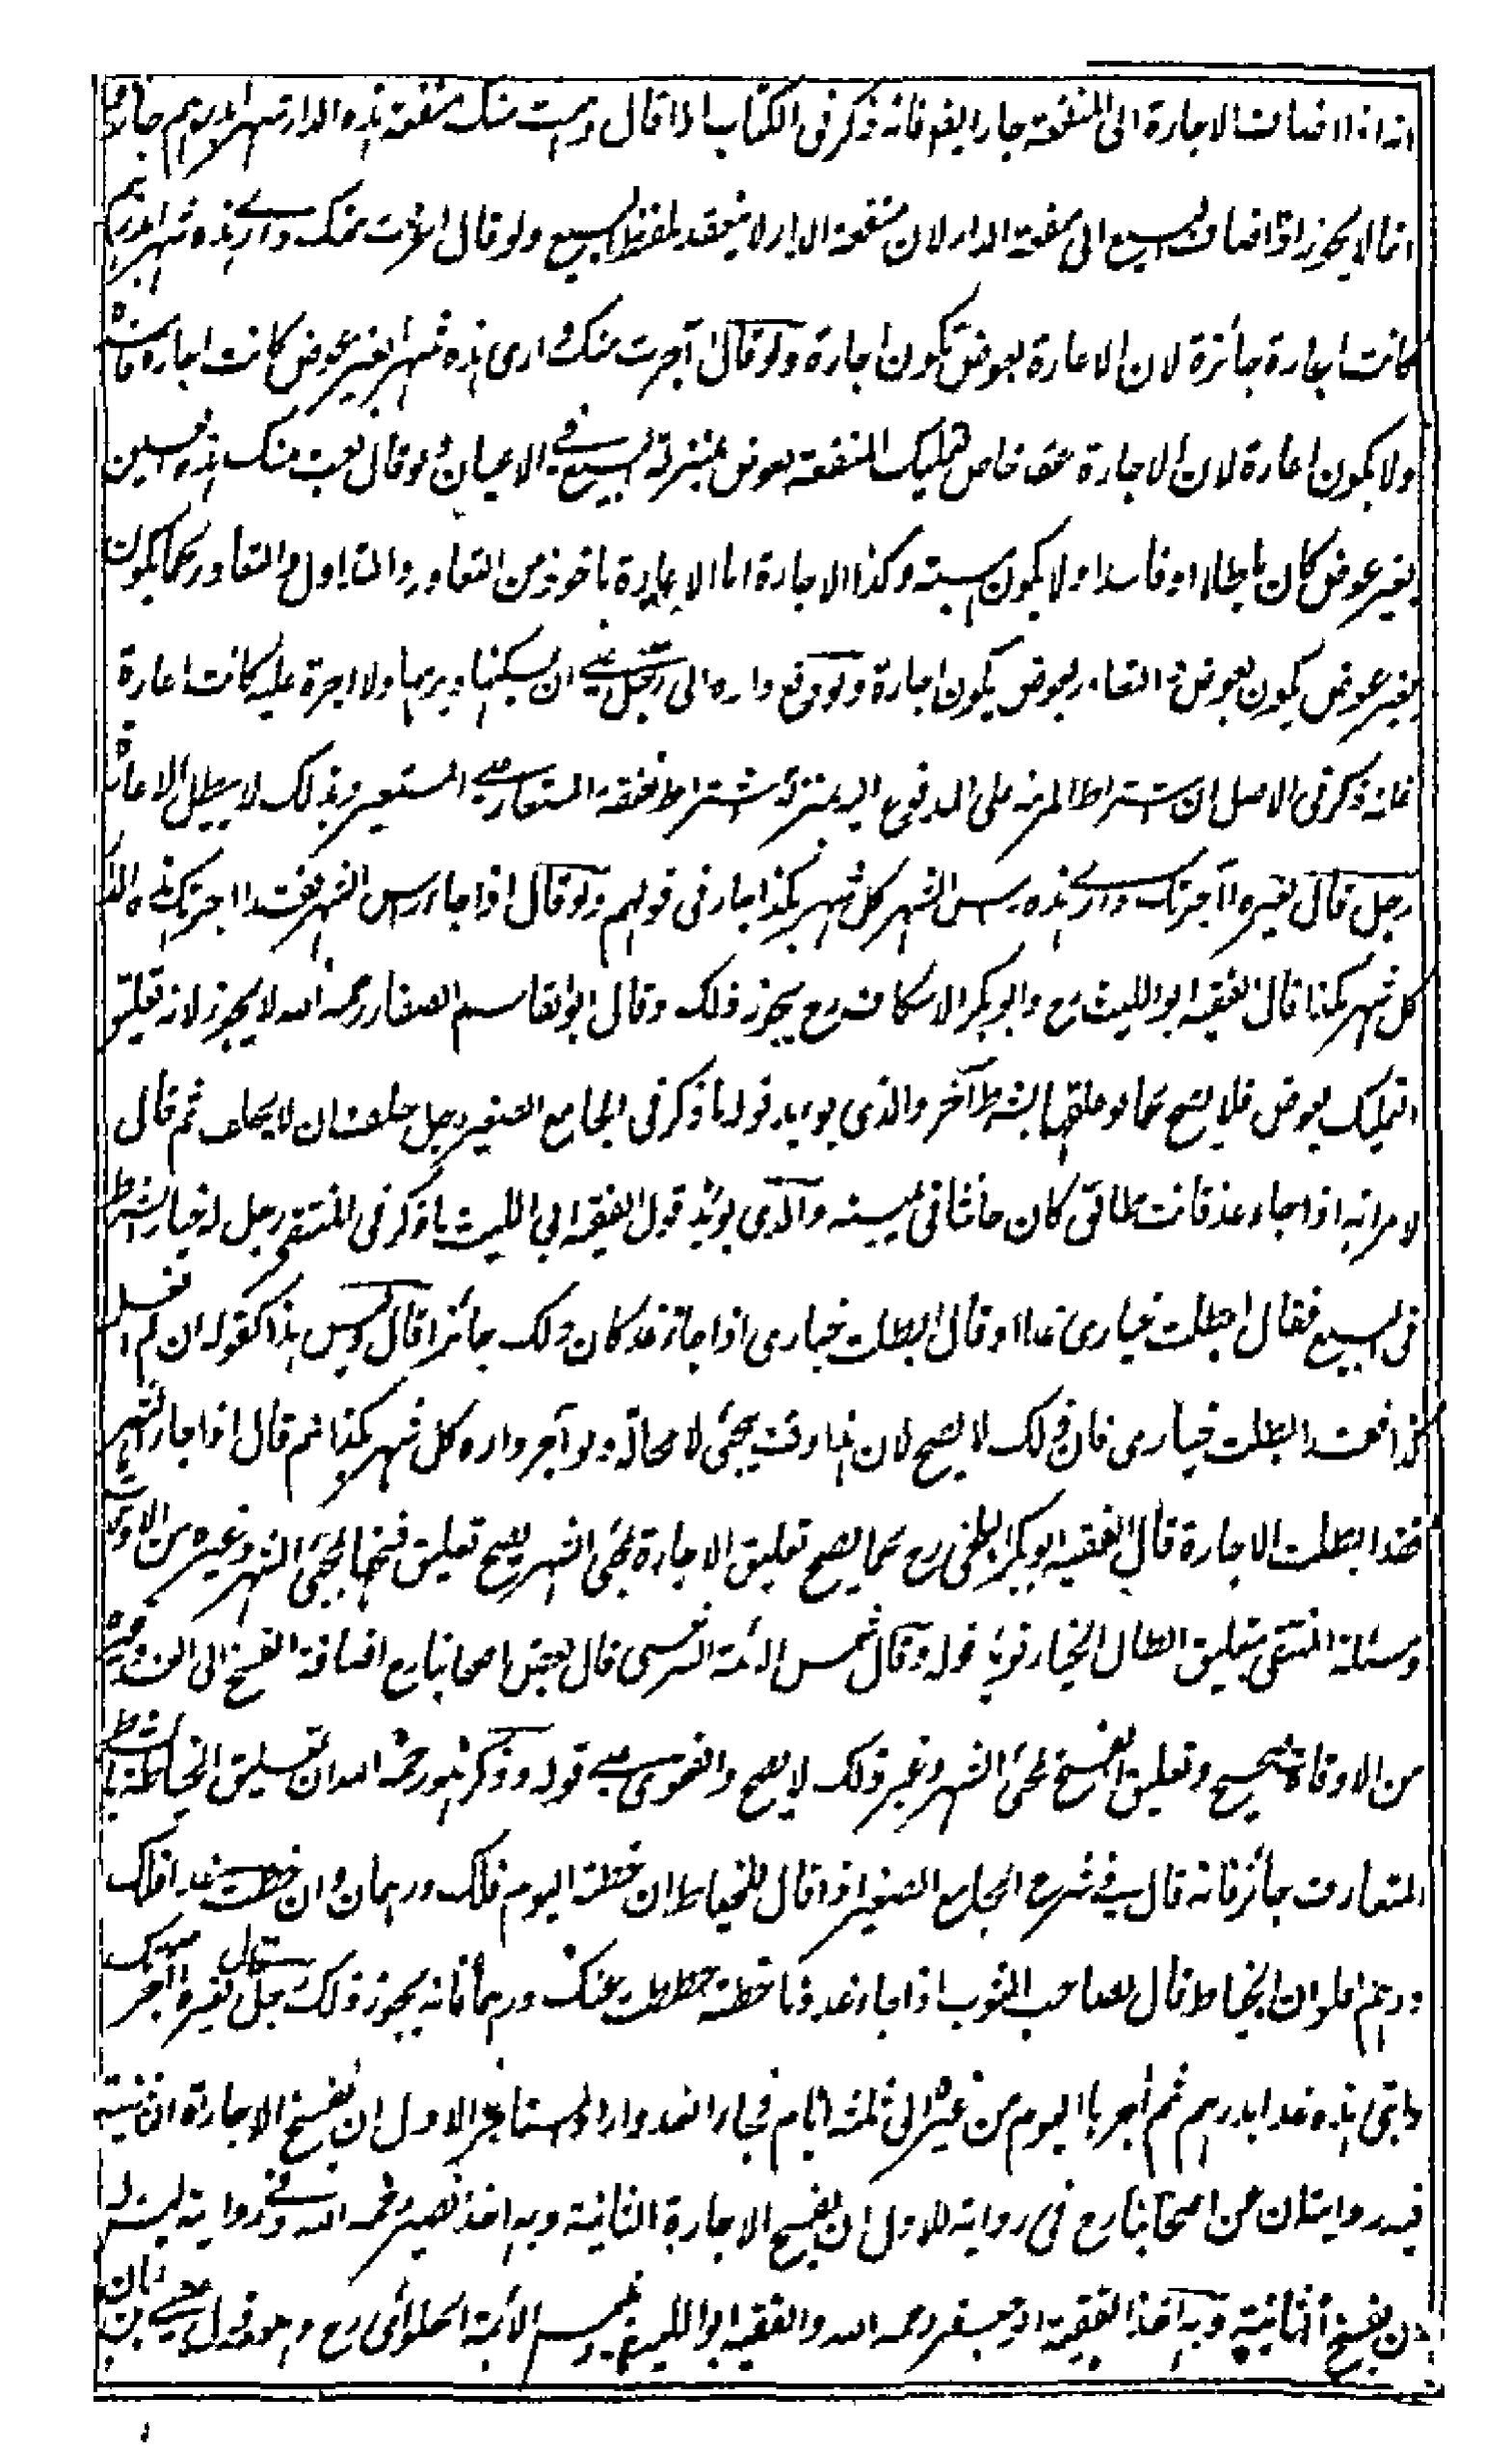 انه اذا اضاف الاجارة الى المنفعة جاز ايضا فانه ذكر فى الكتاب اذا قال وهبت منك منفعة هذه الدار شهرا بدرهم جاز و
انما لا يجوز اذا اضاف البيع الى منفعة الدار لان منفعة الدار لا ينعقد بلفظ البيع ولو قال اعرت منك دارى هذه شهرا بدرهم
كانت اجارة جائزة لان الاعارة بعوض تكون اجارة ولو قال آجرت منك دارى هذه شهرا بغير عوض كانت اجارة فاسدة
ولا يكون اعارة لان الاجارة عقد خاص لتمليك المنفعة بعوض بمنزلة البيع فى الاعيان ولو قال بعت منك هذه العين
بغير عوض كان باطلا او فاسدا ولا يكون هبة وكذا الاجارة اما الاعارة ماخوذ من التعاور والتداول والتعاور كما يكون
بغير عوض يكون بعوض والتعاور بعوض يكون اجارة ولو دفع داره الى رجل على ان يسكنها ويرمها ولا اجرة عليه كانت اعارة
فانه ذكر فى الاصل ان اشتراط المرمة على المدفوع اليه بمنزلة اشتراط نفقة المستعار على المستعير وبذلك لا يبطل الاعارة
رجل قال لغيره آجرتك دارى هذه راس الشهر كل شهر بكذا جاز فى قولهم ولو قال اذا جاء راس الشهر فقد آجرتك هذه الدار
كل شهر بكذا قال الفقيه ابو الليث رح وابو بكر الاسكاف رح يجوز ذلك وقال ابو القاسم الصفار رحمه الله لا يجوز لانه تعليق
التمليك بعوض فلا يصح كما لو علقها بشرط آخر والذى يويد قوله ما ذكر فى الجامع الصغير رجل حلف ان لا يحلف ثم قال
لامراته اذا جاء غد فانت طالق كان حانثا فى يمينه والذى يويد قول الفقيه ابى الليث ما ذكر فى المنتقى رجل له خيار الشرط
فى البيع فقال ابطلت خيارى غدا او قال ابطلت خيارى اذا جاء غد كان ذلك جائزا قال وليس هذا كقوله ان لم افعل
كذا فقد ابطلت خيارى فان ذلك لا يصح لان هذا وقت يجئ لا محالة ولو آجر داره كل شهر بكذا ثم قال اذا جاء الشهر
فقد ابطلت الاجارة قال الفقيه ابو بكر البلخى رح كما يصح تعليق الاجارة بمجئ الشهر يصح تعليق فسخها بمجئ الشهر وغيره من الاوقات
ومسئلة المنتقى بتعليق ابطال الخيار تويد قوله وقال شمس الائمة السرخسى قال بعض اصحابنا رح اضافة الفسخ الى الغد وغيره
من الاوقات صحيح وتعليق الفسخ بمجئ الشهر وغير ذلك لا يصح والفتوى على قوله وذكر هو رحمه الله ان تعليق الحط بالشرط
المتعارف جائز فانه قال فى شرح الجامع الصغير اذا قال للخياط ان خطته اليوم فلك درهمان وان خطته غدا فلك
درهم فلو ان الخياط قال لصاحب الثوب اذا جاء غد وما خطته حططت عنك درهما فانه يجوز ذلك رجل قال لغيره آجرتك
دابتى هذه غدا بدرهم ثم آجرها اليوم من غيره الى ثلثة ايام فجاء الغد واراد المستاجر الاول ان يفسخ الاجارة الثانية
فيه روايتان عن اصحابنا رح فى رواية للاول ان يفسخ الاجارة الثانية وبه اخذ نصير رحمه الله وفى رواية ليس له
ان يفسخ الثانية وبه اخذ الفقيه ابو جعفر رحمه الله والفقيه ابو الليث وشمس الائمة الحلوائى رح وهو قول عيسى بن ابان